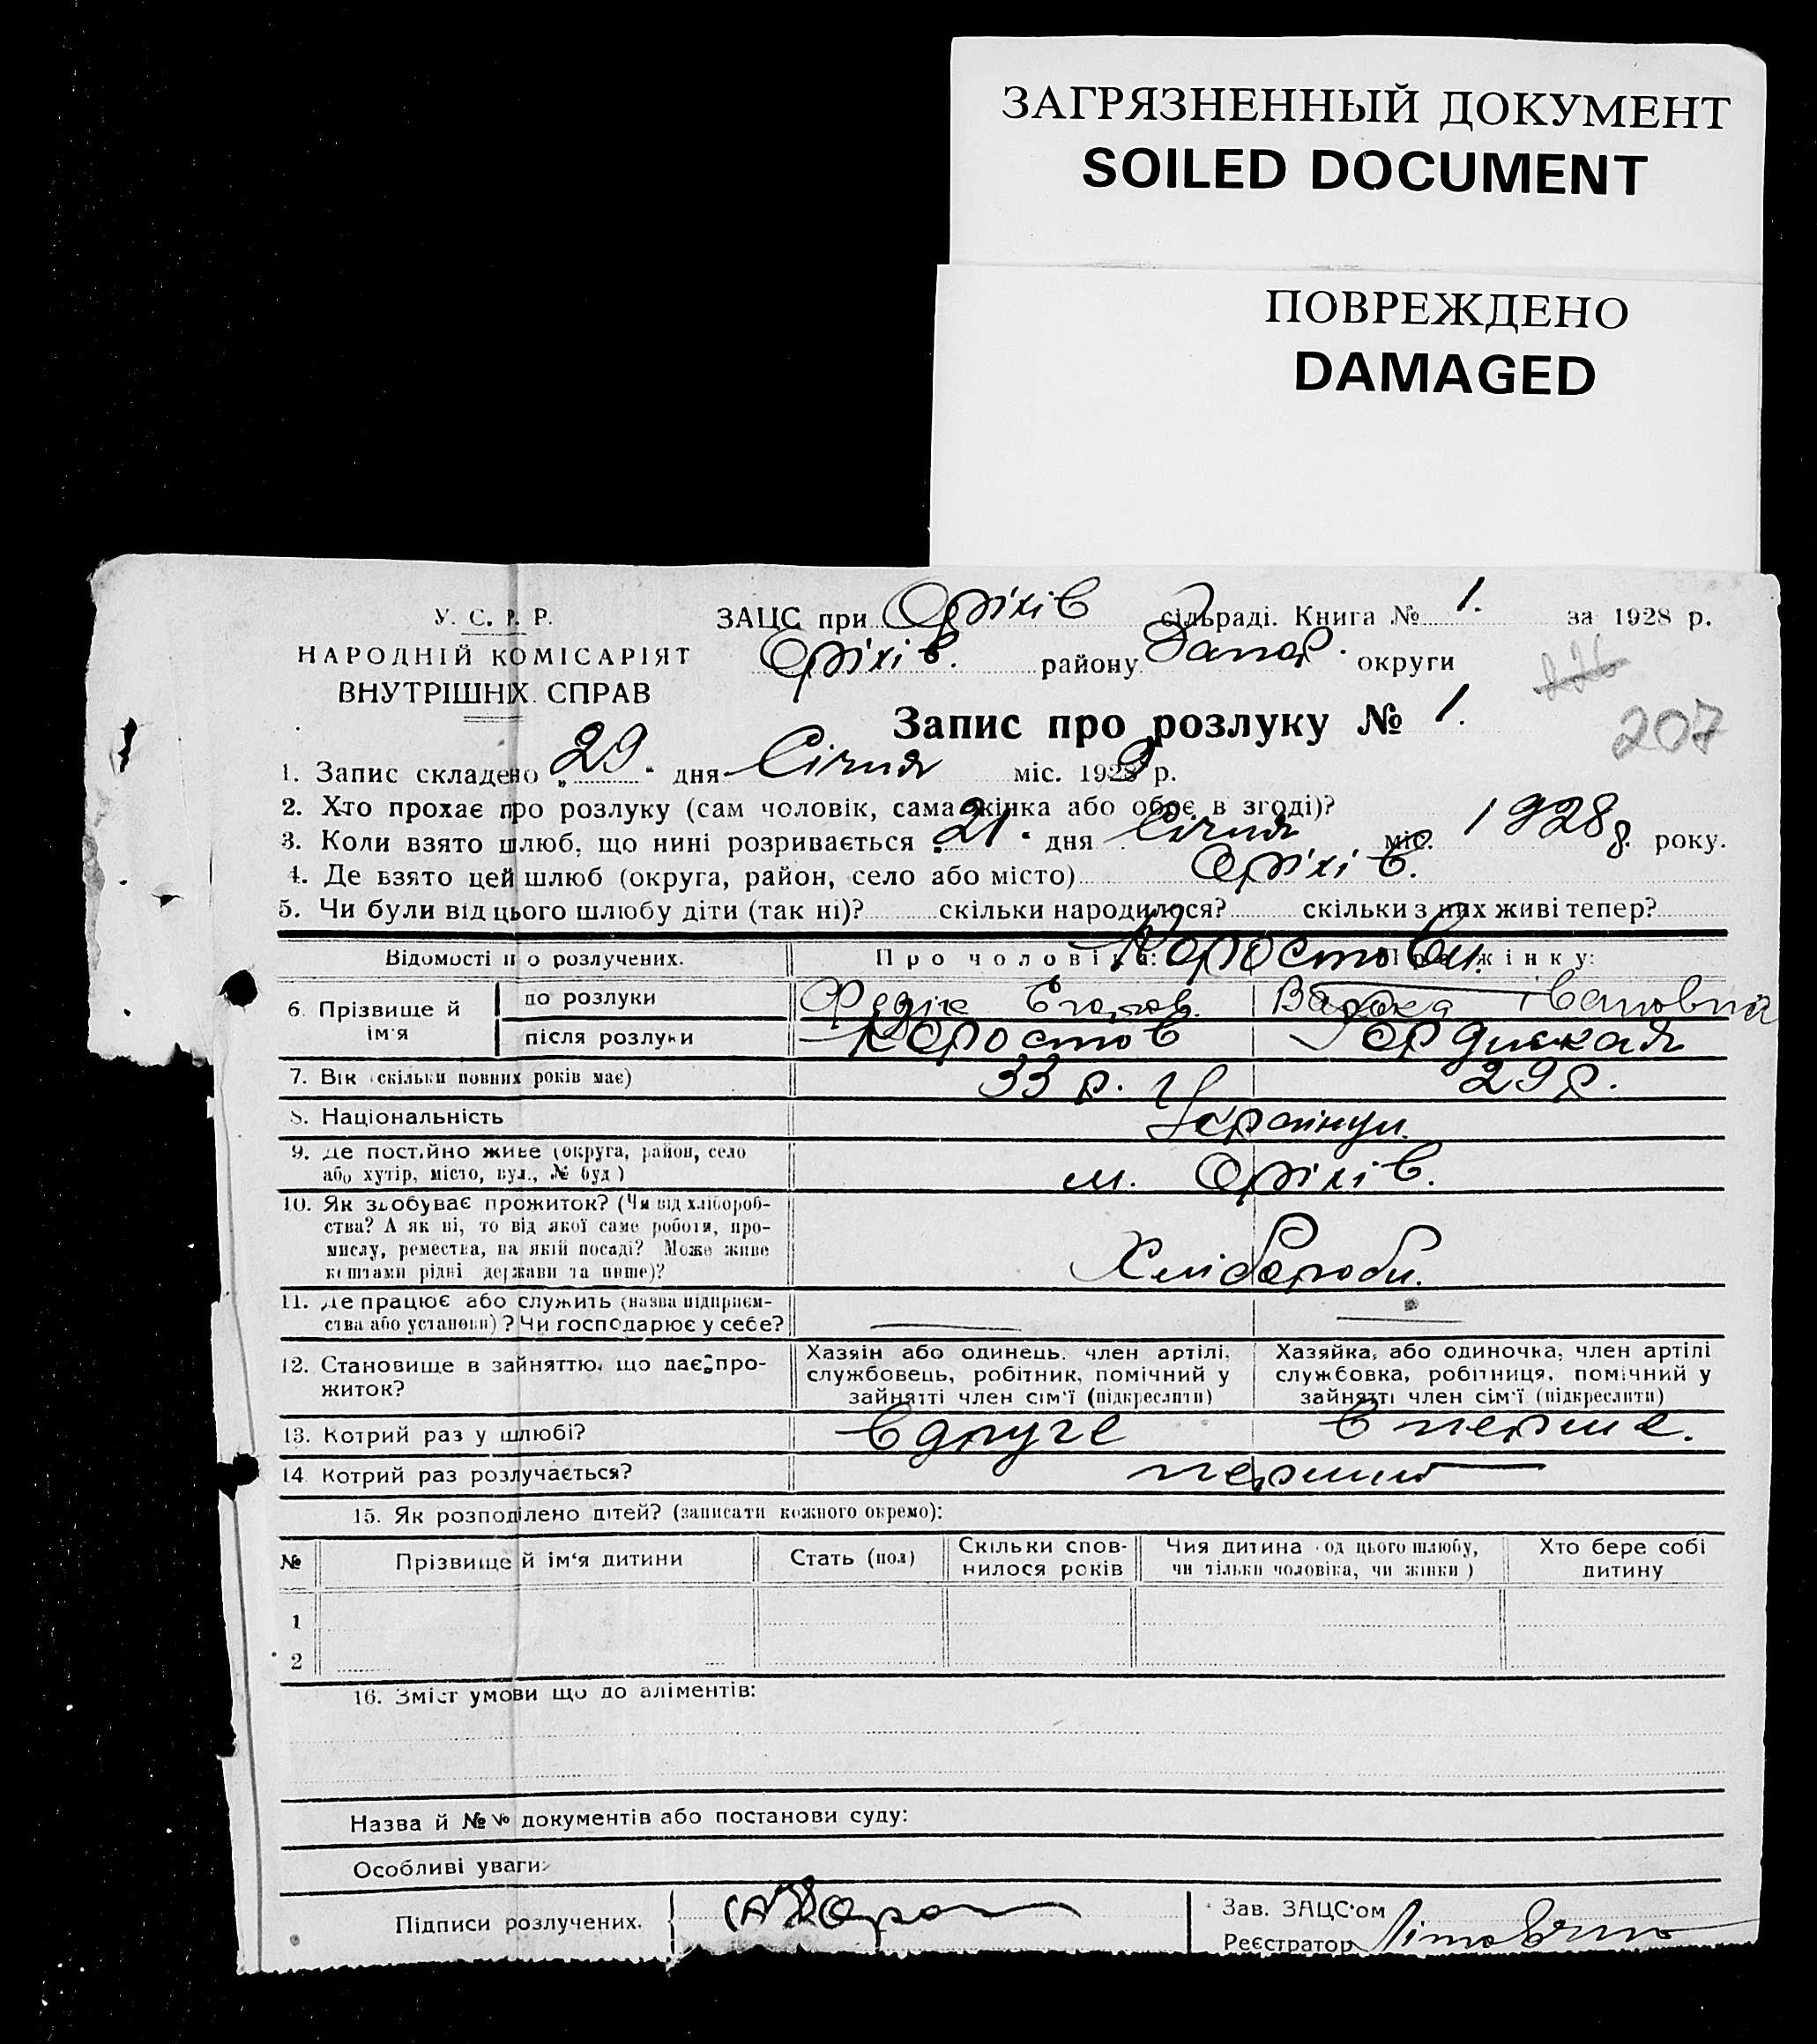 ЗАГРЯЗНЕННЫЙ ДОКУМЕНТ
SOILED DOCUMENT
ПОВРЕЖДЕНО
DAMAGED
У. С. Р. Р.
НАРОДНІЙ КОМІСАРІЯТ
ВНУТРІШНІХ СПРАВ
ЗАЦС при Оріхів сільраді. Книга № 1. за 1928 р.
Оріхів. району Запор. округи
226
207
Запис про розлуку № 1.
1. Запис складено „29" дня Січня міс. 1929 р.
2. Хто прохає про розлуку (сам чоловік, сама жінка або обоє в згоді)?
3. Коли взято шлюб, що нині розривається „21" дня Січня міс. 1928 р. року.
4. Де взято цей шлюб (округа, район, село або місто) Оріхів.
5. Чи були від цього шлюбу діти (так ні)? скільки народилося? скільки з них живі тепер?
Відомості про розлучених. Про чоловіка: Про жінку:
Коростови.
6. Прізвище й ім'я
до розлуки Федір Егоров. Варка Івановна
після розлуки Коростов
7. Вік (скільки повних років має) 33 р. 29 р.
8. Національність Українци.
9. Де постійно живе (округа, район, село
або хутір, місто, вул., № буд) м. Оріхів.
10. Як здобуває прожиток? (Чи від хлібороб-
ства? А як ні, то від якої саме роботи, про-
мислу, ремества, на якій посаді? Може живе
коштами рідні держави та инше)? Хлібороби.
11. Де працює або служить (назва підприєм-
ства або установи)? Чи господарює у себе?
12. Становище в зайняттю, що дає про-
житок?
Хазяїн або одинець, член артілі,
службовець, робітник, помічний у
зайнятті член сім'ї (підкреслити)
Хазяйка, або одиночка, член артілі
службовка, робітниця, помічний у
зайнятті член сім'ї (підкреслити)
13. Котрий раз у шлюбі? вдруге вперше.
14. Котрий раз розлучається? перший
15. Як розподілено дітей? (записати кожного окремо):
№ Прізвище й ім'я дитини Стать (пол) Скільки спов-
нилося років Чия дитина (од цього шлюбу,
чи тільки чоловіка, чи жінки) Хто бере собі
дитину
1
2
16. Зміст умови що до аліментів:
Назва й №№ документів або постанови суду:
Особливі уваги:
Підписи розлучених.
Зав. ЗАЦС'ом
Реєстратор